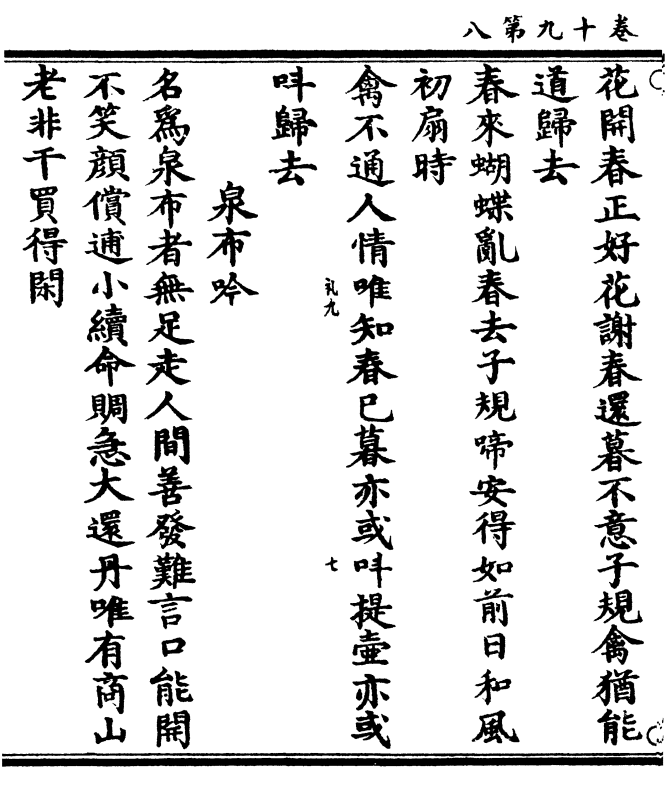 卷十九第八
花開春正好花謝春還暮不意子規禽猶能
道歸去
春來蝴蝶亂春去子規啼安得如前日和風
初扇時
禽不通人情唯知春巳暮亦或呌提壺亦或
礼九
七
呌歸去
泉布吟
名爲泉布者無足走人間善發難言口能開
不笑顔償逋小續命賙急大還丹唯有商山
老非干買得閑